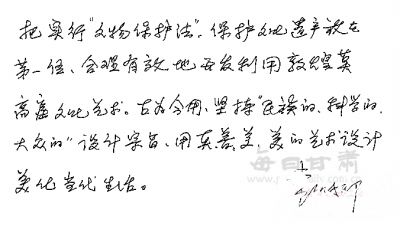 把实行“文物保护法”、保护文化遗产放在
第一位、合理有效地开发利用敦煌莫
高窟文化艺术。古为今用、坚持“民族的、科学的、
大众的”设计宗旨、用真善美、美的艺术设计
美化当代生活。
每日甘肃